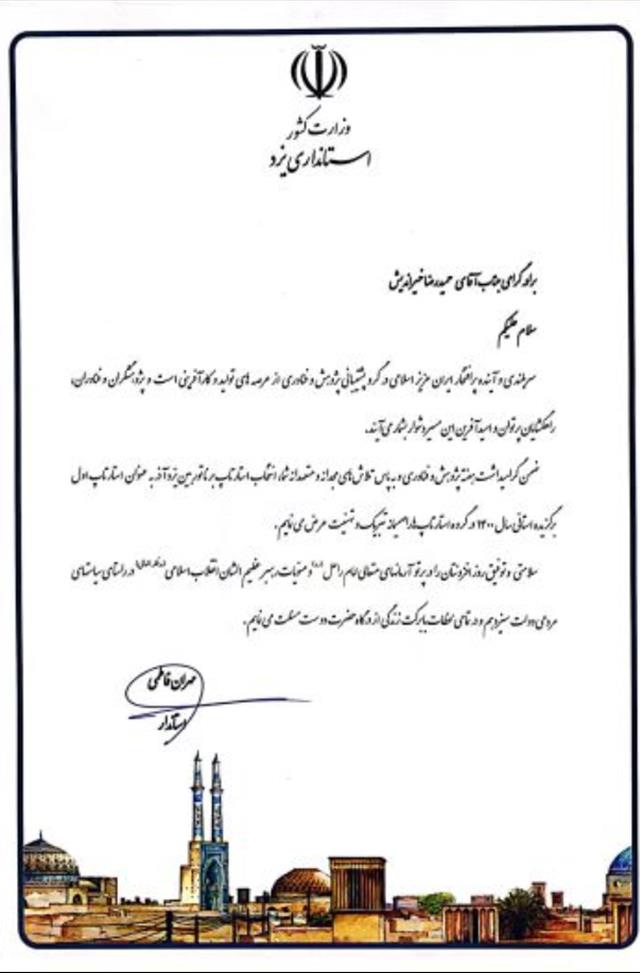 وزارت کشور
استانداری یزد
برادر گرامی جناب آقای حمیدرضا خیراندیش
سلام علیکم
سربلندی و آینده پرافتخار ایران عزیز اسلامی در گرو پشتیبانی پژوهش و فناوری از عرصه های تولید و کارآفرینی است و پژوهشگران و فناوران،
راهگشایان پرتوان و امیدآفرین این مسیر دشوار بشمار می‌آیند.
ضمن گرامیداشت هفته پژوهش و فناوری و به پاس تلاش های مجدانه و متعهدانه شما، انتخاب استارتاپ به عنوان استارتاپ اول
برگزیده استانی سال ۱۴۰۰ در گروه استارتاپ ها، صمیمانه تبریک و تهنیت عرض می نمایم.
سلامتی و توفیق روزافزونتان را در پرتو آرمانهای متعالی امام راحل (ره) و منویات رهبر عظیم الشان انقلاب اسلامی در راستای سیاستهای
مردمی دولت سیزدهم و در تمامی لحظات بابرکت زندگی از درگاه حضرت دوست مسئلت می نمایم.
مهران فاطمی
استاندار